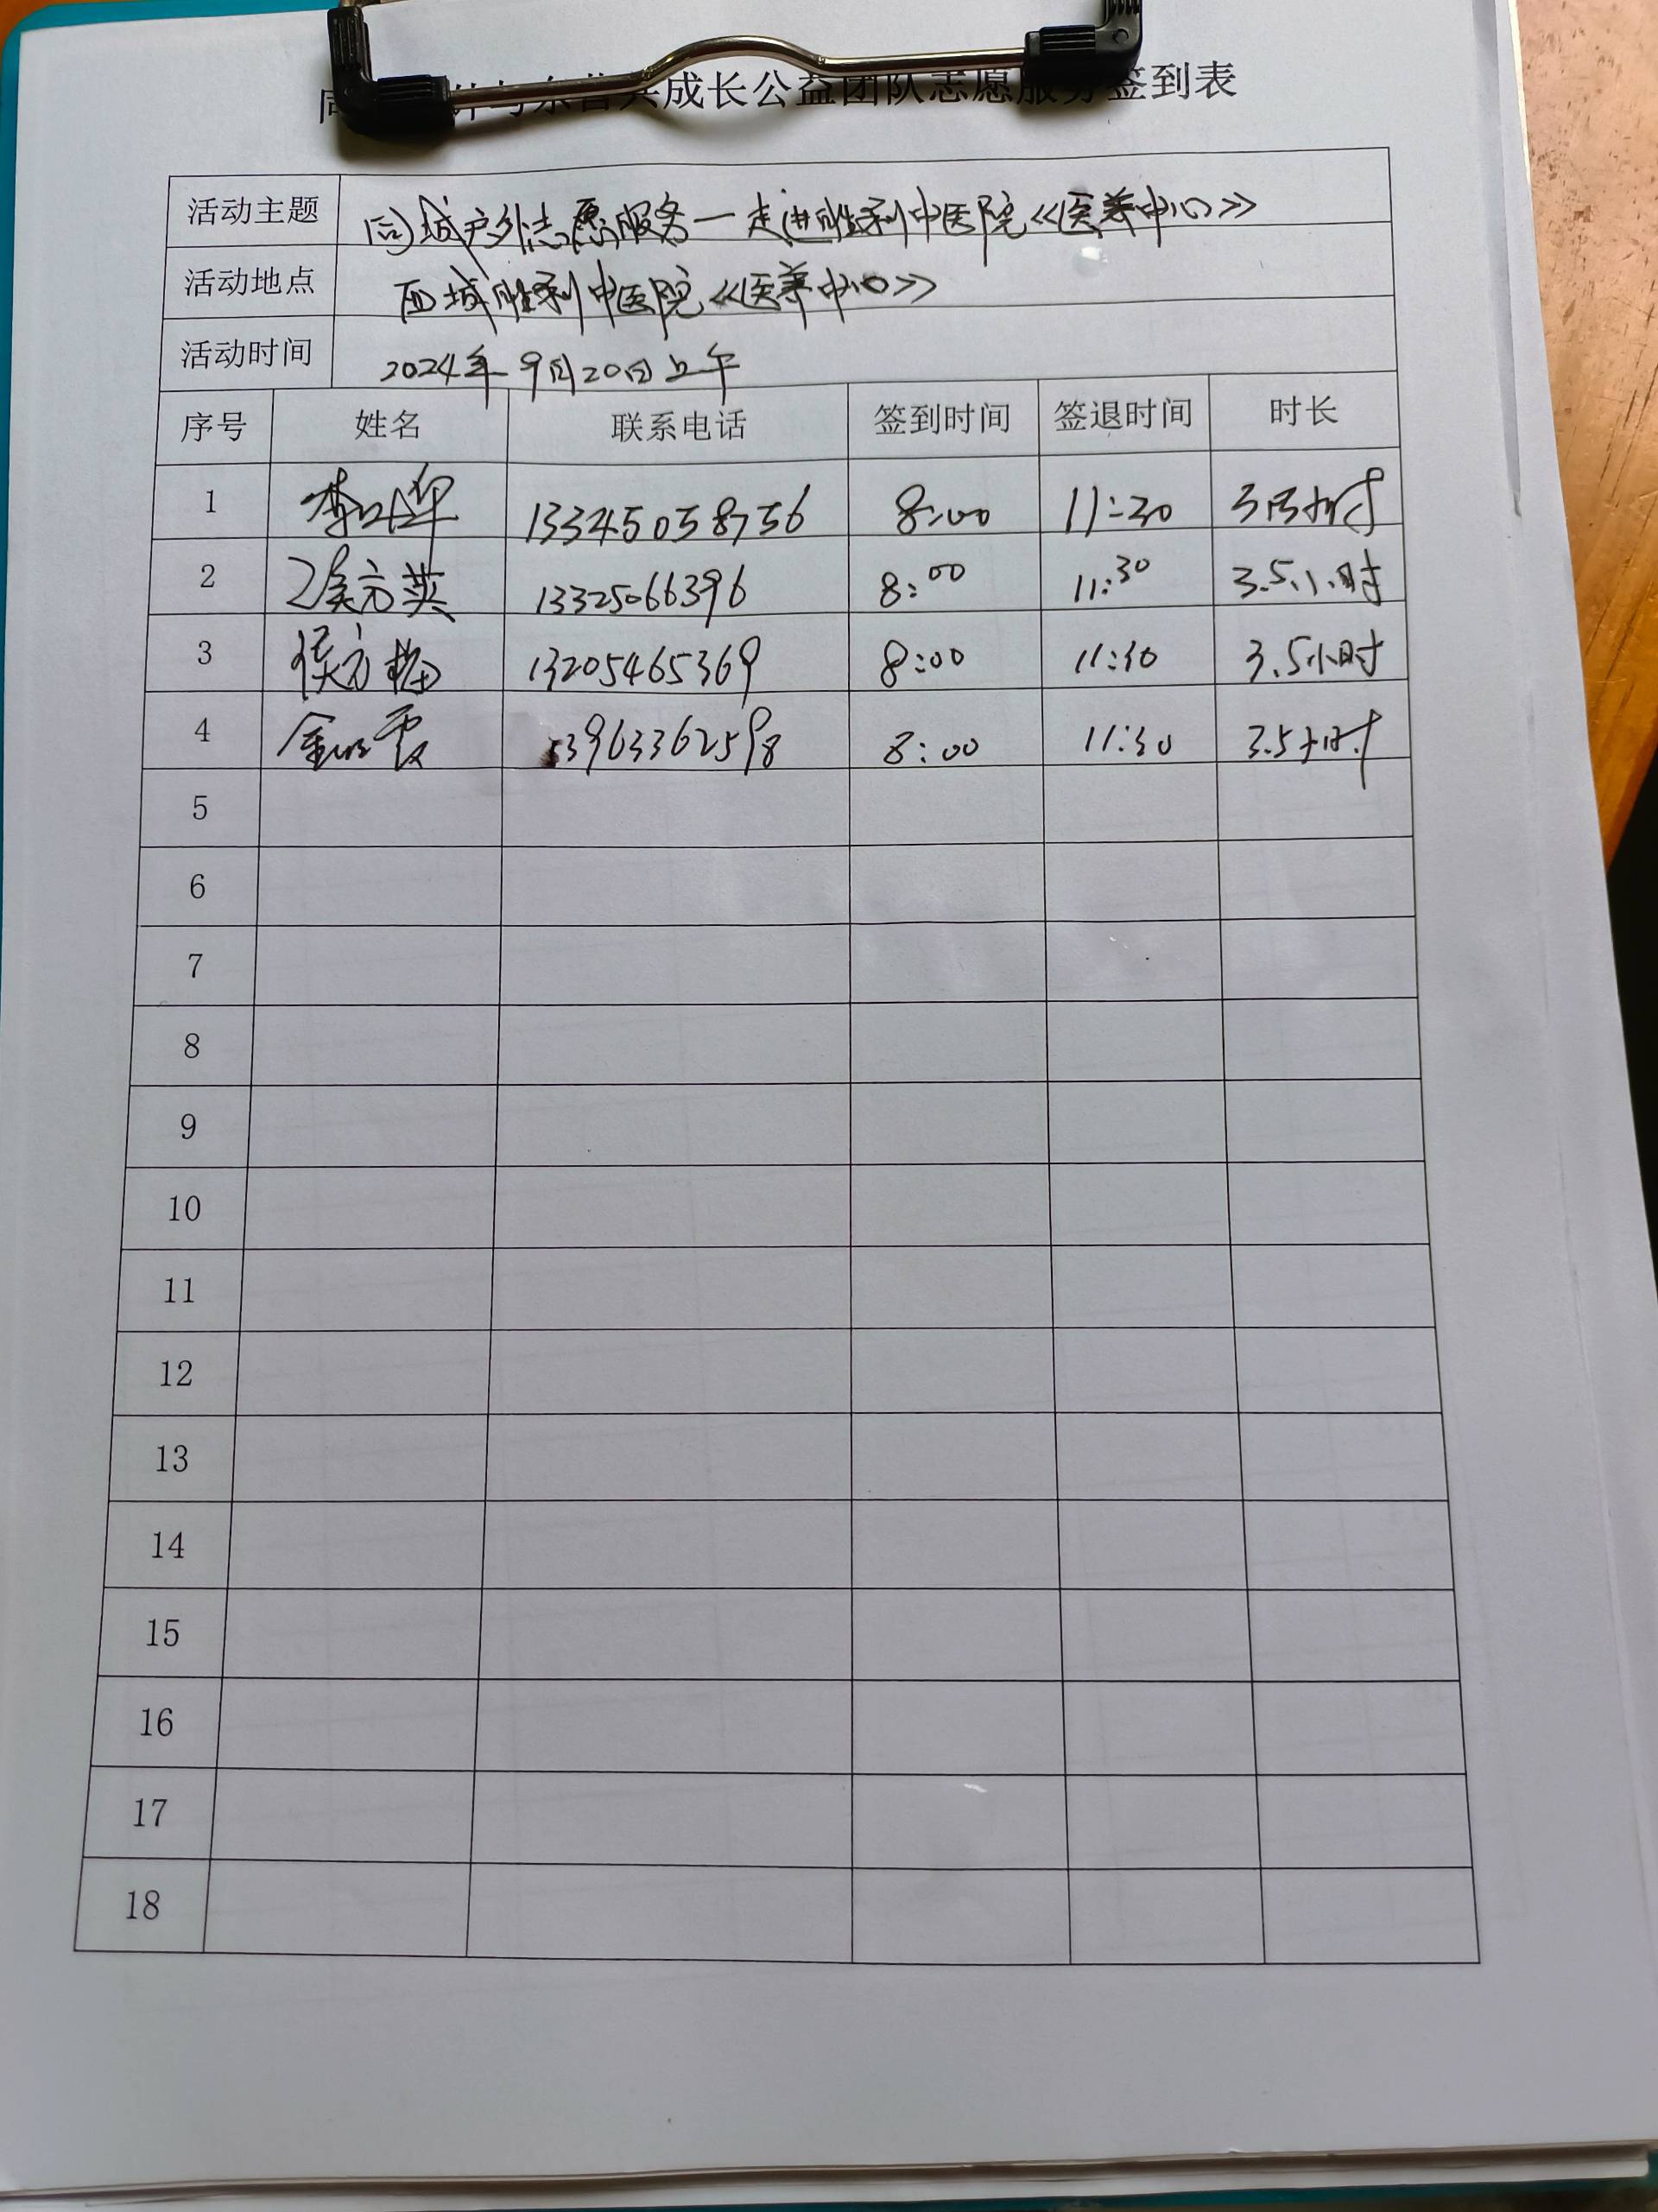 成长公益团队志愿服务签到表
活动主题 同城户外志愿服务一走进胜利中医院《医养中心》
活动地点 西城胜利中医院《医养中心》
活动时间 2024年9月20日上午
序号 姓名 联系电话 签到时间 签退时间 时长
1 李 13345058756 8:00 11:30 3.5小时
2 侯方英 13325066396 8:00 11:30 3.5小时
3 侯方梅 13205465369 8:00 11:30 3.5小时
4 金 13963362598 8:00 11:30 3.5小时
5
6
7
8
9
10
11
12
13
14
15
16
17
18